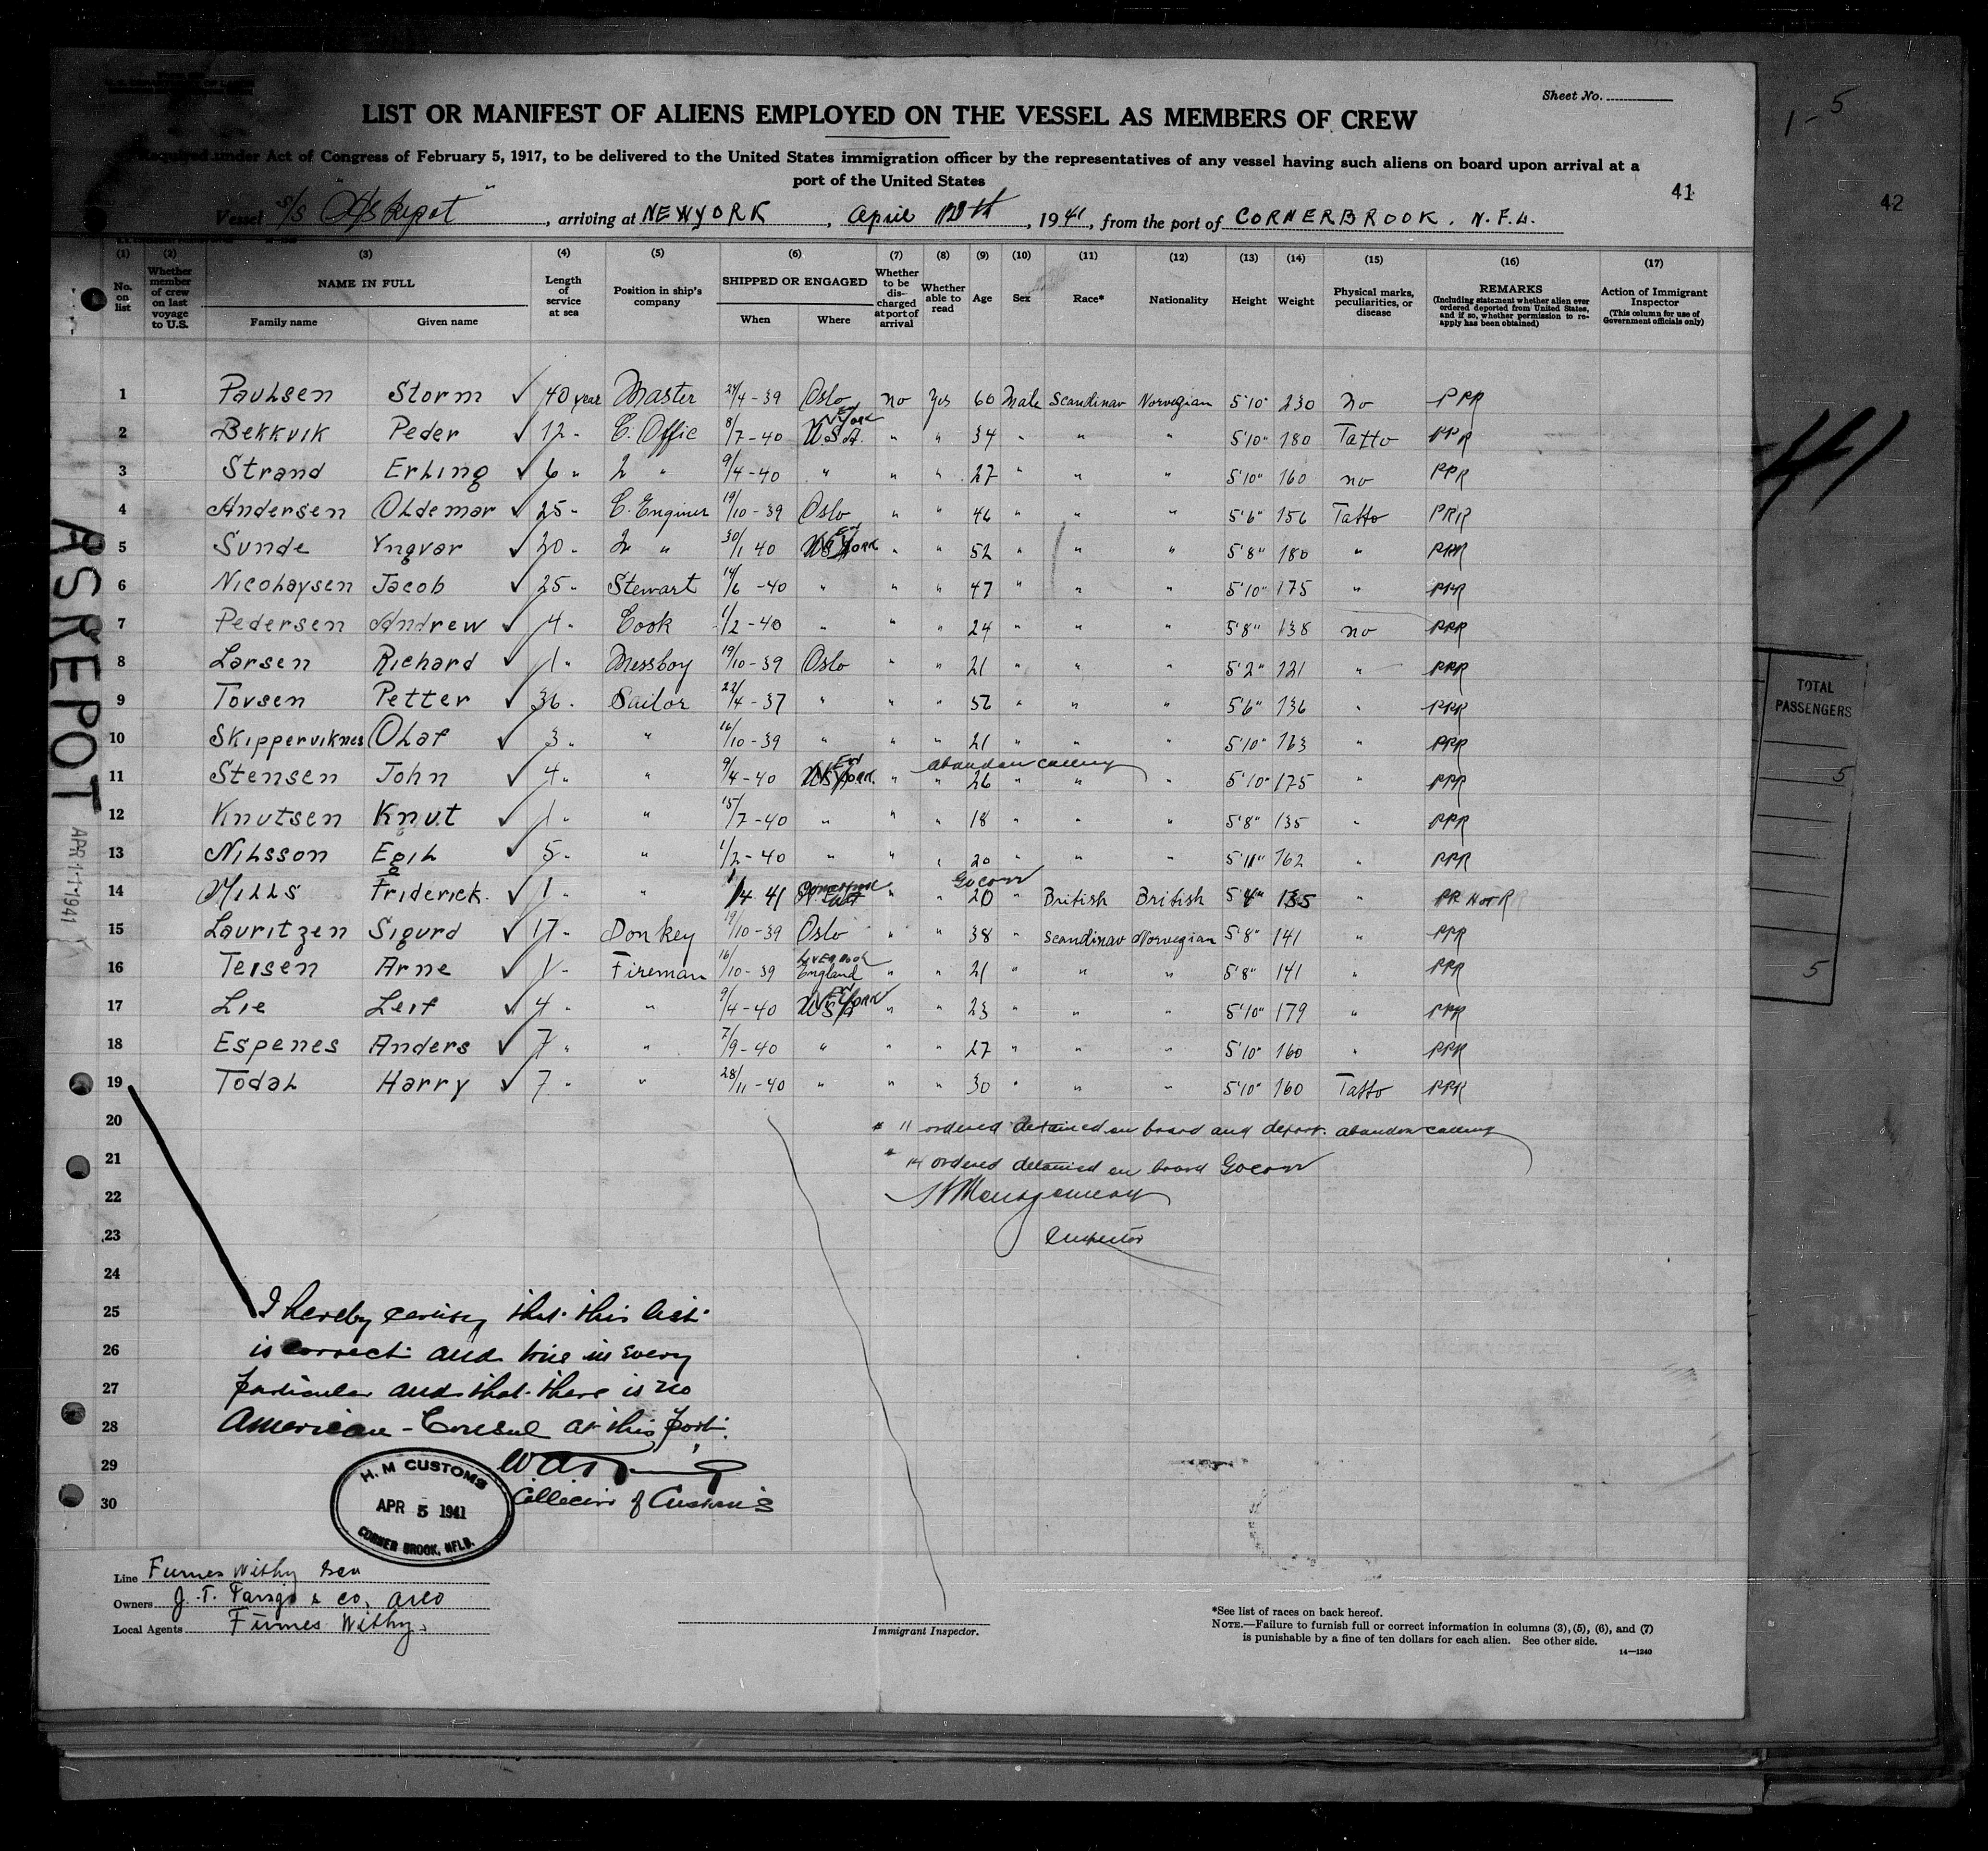 Sheet No.
1-5
LIST OR MANIFEST OF ALIENS EMPLOYED ON THE VESSEL AS MEMBERS OF CREW
Required under Act of Congress of February 5, 1917, to be delivered to the United States immigration officer by the representatives of any vessel having such aliens on board upon arrival at a
port of the United States
41
42
Vessel S/S "Askepot", arriving at NEW YORK, April, 1941, from the port of CORNERBROOK. N.F.L.
(1) (2) (3) (4) (5) (6) (7) (8) (9) (10) (11) (12) (13) (14) (15) (16) (17)
No. on list
Whether member of crew on last voyage to U.S.
NAME IN FULL
Family name Given name
Length of service at sea
Position in ship's company
SHIPPED OR ENGAGED
When Where
Whether to be discharged at port of arrival
Whether able to read
Age
Sex
Race*
Nationality
Height
Weight
Physical marks, peculiarities, or disease
REMARKS
(Including statement whether alien ever ordered deported from United States, and if so, whether permission to reapply has been obtained)
Action of Immigrant Inspector
(This column for use of Government officials only)
1 Paulsen Storm ✓ 40 year Master 24/4-39 Oslo no Yes 60 Male Scandinav Norwegian 5'10" 230 no PPR
2 Bekkvik Peder ✓ 12 " C. Offic 8/7-40 New York " " 34 " " " 5'10" 180 Tatto PPR
3 Strand Erling ✓ 6 " 2 " 9/4-40 " " " 27 " " " 5'10" 160 no PPR
4 Andersen Oldemar ✓ 25 " C. Enginer 19/10-39 Oslo " " 46 " " " 5'6" 156 Tatto PPR
5 Sunde Yngvar ✓ 20 " 2 " 30/1 40 New York " " 52 " " " 5'8" 180 " PPR
6 Nicolaysen Jacob ✓ 25 " Stewart 14/6-40 " " " 47 " " " 5'10" 175 " PPR
7 Pedersen Andrew ✓ 4 " Cook 1/2-40 " " " 24 " " " 5'8" 138 no PPR
8 Larsen Richard ✓ 1 " Messboy 19/10-39 Oslo " " 21 " " " 5'2" 121 " PPR
9 Torsen Petter ✓ 36 " Sailor 22/4-37 " " " 56 " " " 5'6" 136 " PPR
10 Skipperviknes Olaf ✓ 3 " " 16/10-39 " " " 21 " " " 5'10" 163 " PPR
abandon calling
11 Stensen John ✓ 4 " " 9/4-40 New York " " 26 " " " 5'10" 175 " PPR
12 Knutsen Knut ✓ 1 " " 15/7-40 " " " 18 " " " 5'8" 135 " PPR
13 Nilsson Egil ✓ 5 " " 1/2-40 " " " 20 " " " 5'11" 162 " PPR
14 Mills Friderick ✓ 1 " " 1/4 41 " " 20 " British British 5'4" 135 " PR Not R
15 Lauritzen Sigurd ✓ 17 " Donkey 19/10-39 Oslo " " 38 " Scandinav Norwegian 5'8" 141 " PPR
16 Teisen Arne ✓ 1 " Fireman 16/10-39 Liverpool England " " 21 " " " 5'8" 141 " PPR
17 Lie Leif ✓ 4 " " 9/4-40 New York " " 23 " " " 5'10" 179 " PPR
18 Espenes Anders ✓ 7 " " 7/9-40 " " " 27 " " " 5'10" 160 " PPR
19 Todal Harry ✓ 7 " " 28/11-40 " " " 30 " " " 5'10" 160 Tatto PPR
20 # 11 ordered detained on board and deport. abandon calling
21 # 14 ordered detained on board
22 Montgomery
23 Inspector
24
25 I hereby certify that this list
26 is correct and true in every
27 particular and that there is no
28 American Consul at this port.
29
30 Collector of Customs
H. M CUSTOMS
APR 5 1941
CORNER BROOK, NFLD.
Line Furnes Withy
Owners & Co,
Local Agents Furnes Withy.
Immigrant Inspector.
*See list of races on back hereof.
NOTE.—Failure to furnish full or correct information in columns (3), (5), (6), and (7)
is punishable by a fine of ten dollars for each alien. See other side.
14—1240
ASKEPOT
APR 11 1941
41
TOTAL
PASSENGERS
5
5